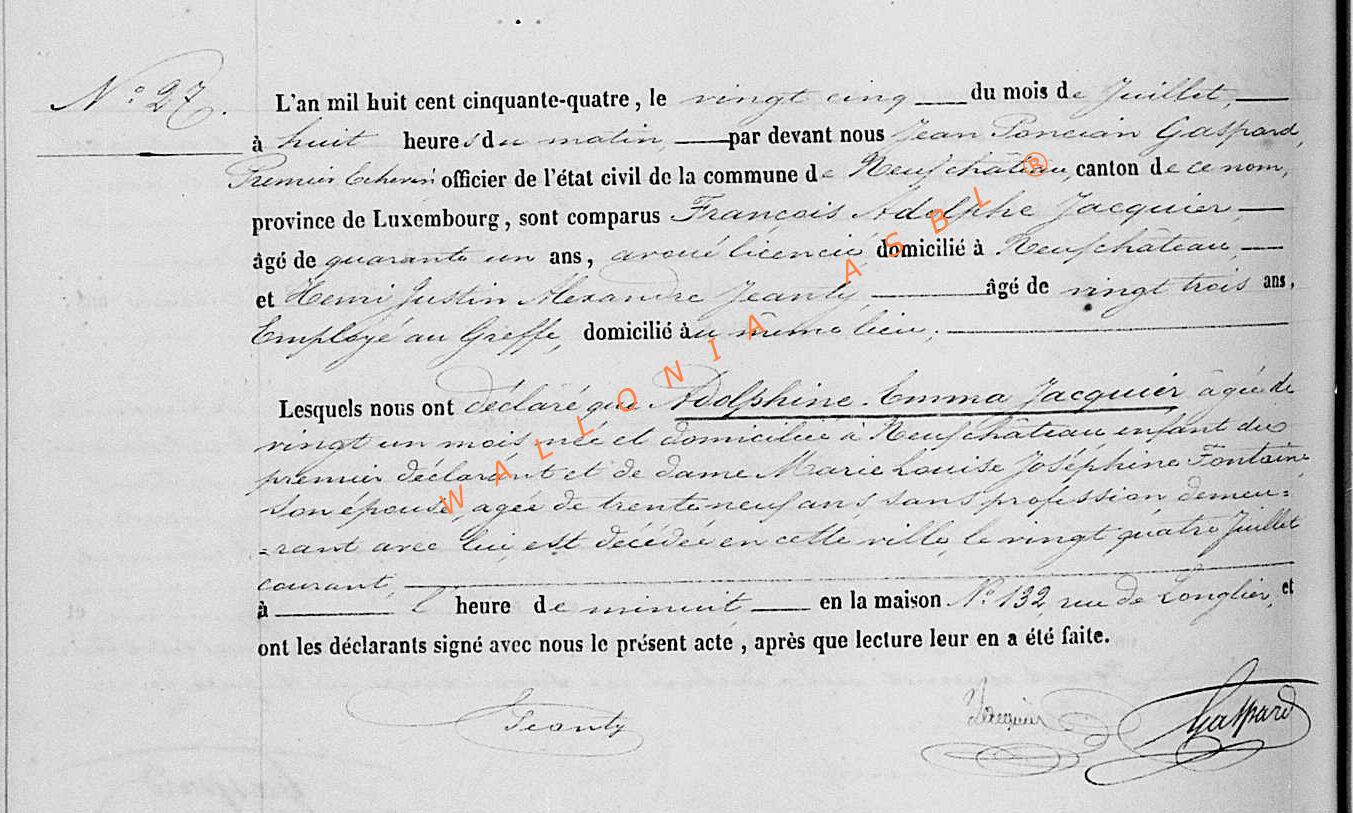 N° 27.
L'an mil huit cent cinquante-quatre, le vingt cinq du mois de Juillet,
à huit heures du matin, par devant nous Jean Poncian Gaspard,
Premier Echevin officier de l'état civil de la commune de Neufchâteau, canton de ce nom,
province de Luxembourg, sont comparus François Adolphe Jacquier,
âgé de quarante un ans, avoué licencié, domicilié à Neufchâteau,
et Henri Justin Alexandre Jeanty, âgé de vingt trois ans,
Employé au Greffe, domicilié au même lieu,
Lesquels nous ont déclaré que Adolphine Emma Jacquier âgée de
vingt un mois née et domiciliée à Neufchâteau enfant du
premier déclarant et de dame Marie Louise Joséphine Fontaine
son épouse, agée de trente neuf ans sans profession demeu=
=rant avec lui, est décédée en cette ville, le vingt quatre Juillet
courant,
à l heure de minuit en la maison N° 132 rue de Longlier, et
ont les déclarants signé avec nous le présent acte, après que lecture leur en a été faite.
Jeanty Jacquier Gaspard
WALLONIA ASBL ®